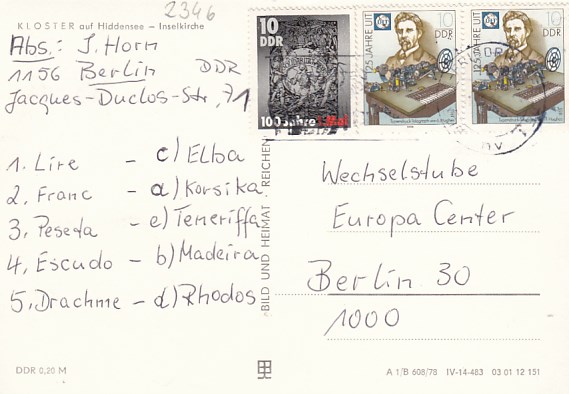 2346
KLOSTER auf Hiddensee – Inselkirche
Abs.: J. Horn
1156 Berlin DDR
Jacques-Duclos-Str, 71
1. Lire - c) Elba
2. Franc - a) Korsika
3. Peseta - e) Teneriffa
4. Escudo - b) Madeira
5. Drachme - d) Rhodos
DDR 0,20 M
BILD UND HEIMAT · REICHEN
10
DDR
100 Jahre 1. Mai
125 JAHRE UIT
10
DDR
125 JAHRE UIT
10
DDR
Wechselstube
Europa Center
Berlin 30
1000
A 1/B 608/78 IV-14-483 03 01 12 151